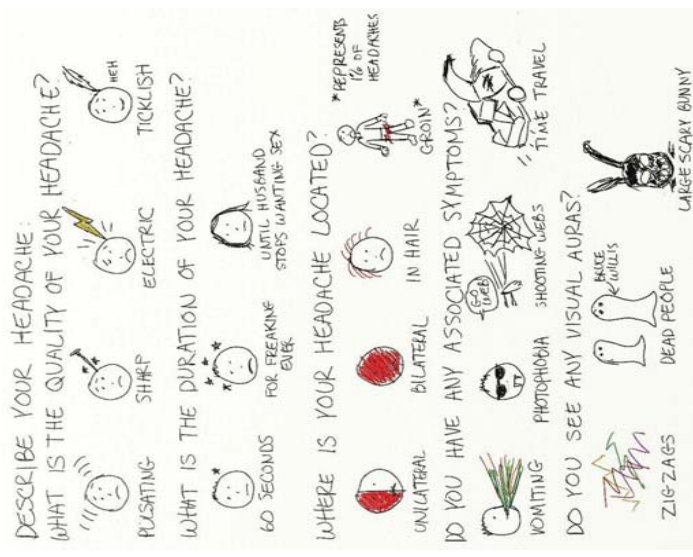 DESCRIBE YOUR HEADACHE:
WHAT IS THE QUALITY OF YOUR HEADACHE?
HEH
PULSATING
SHARP
ELECTRIC
TICKLISH
WHAT IS THE DURATION OF YOUR HEADACHE?
60 SECONDS
FOR FREAKING
EVER
UNTIL HUSBAND
STOPS WANTING SEX
WHERE IS YOUR HEADACHE LOCATED?
*REPRESENTS
1% OF
HEADACHES
UNILATERAL
BILATERAL
IN HAIR
GROIN*
DO YOU HAVE ANY ASSOCIATED SYMPTOMS?
GO
WEB!
VOMITING
PHOTOPHOBIA
SHOOTING WEBS
TIME TRAVEL
DO YOU SEE ANY VISUAL AURAS?
BRUCE
WILLIS
ZIGZAGS
DEAD PEOPLE
LARGE SCARY BUNNY